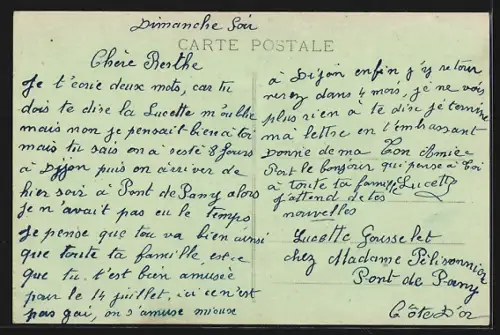 Dimanche Soir
CARTE POSTALE
Chère Berthe
Je t'ecrie deux mots, car tu
dois te dise la Lucette m'oublie
mais non je pensait bien a toi
mais tu sais on a resté 8 Jours
a Dijon puis on arriver de
hier soir a Pont de Pany alors
je n'avait pas eu le temps
je pense que tou va bien ainsi
que toute ta famille, est ce
que tu t'est bien amusée
pour le 14 juillet, ici ce n'est
pas gai, on s'amuse mieux
à Dijon enfin j'y retour
nerez dans 4 mois, je ne vois
plus rien à te dise je termine
ma lettre en t'embrassant
Donne de ma Bon Amie
le bonjour qui pense à Toi
à toute ta famille Lucette
J'attend de tes
nouvelles
Lucette Gousselet
chez Madame Pélissonnier
Pont de Pany
Côte D'or